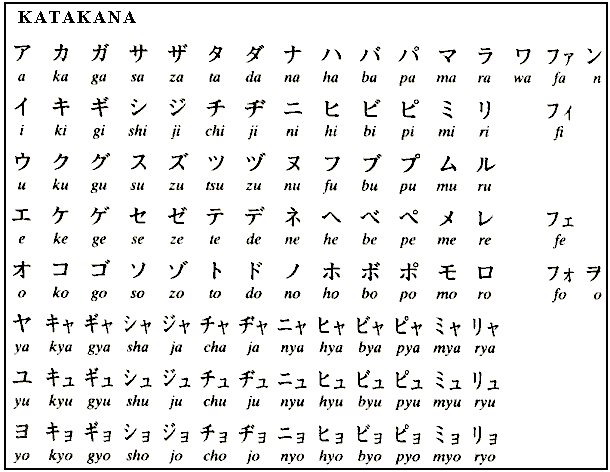 KATAKANA
ア カ ガ サ ザ タ ダ ナ ハ バ パ マ ラ ワ ファ ン
a ka ga sa za ta da na ha ba pa ma ra wa fa n
イ キ ギ シ ジ チ ヂ ニ ヒ ビ ピ ミ リ フィ
i ki gi shi ji chi ji ni hi bi pi mi ri fi
ウ ク グ ス ズ ツ ヅ ヌ フ ブ プ ム ル
u ku gu su zu tsu zu nu fu bu pu mu ru
エ ケ ゲ セ ゼ テ デ ネ ヘ ベ ペ メ レ フェ
e ke ge se ze te de ne he be pe me re fe
オ コ ゴ ソ ゾ ト ド ノ ホ ボ ポ モ ロ フォ ヲ
o ko go so zo to do no ho bo po mo ro fo o
ヤ キャ ギャ シャ ジャ チャ ヂャ ニャ ヒャ ビャ ピャ ミャ リャ
ya kya gya sha ja cha ja nya hya bya pya mya rya
ユ キュ ギュ シュ ジュ チュ ヂュ ニュ ヒュ ビュ ピュ ミュ リュ
yu kyu gyu shu ju chu ju nyu hyu byu pyu myu ryu
ヨ キョ ギョ ショ ジョ チョ ヂョ ニョ ヒョ ビョ ピョ ミョ リョ
yo kyo gyo sho jo cho jo nyo hyo byo pyo myo ryo